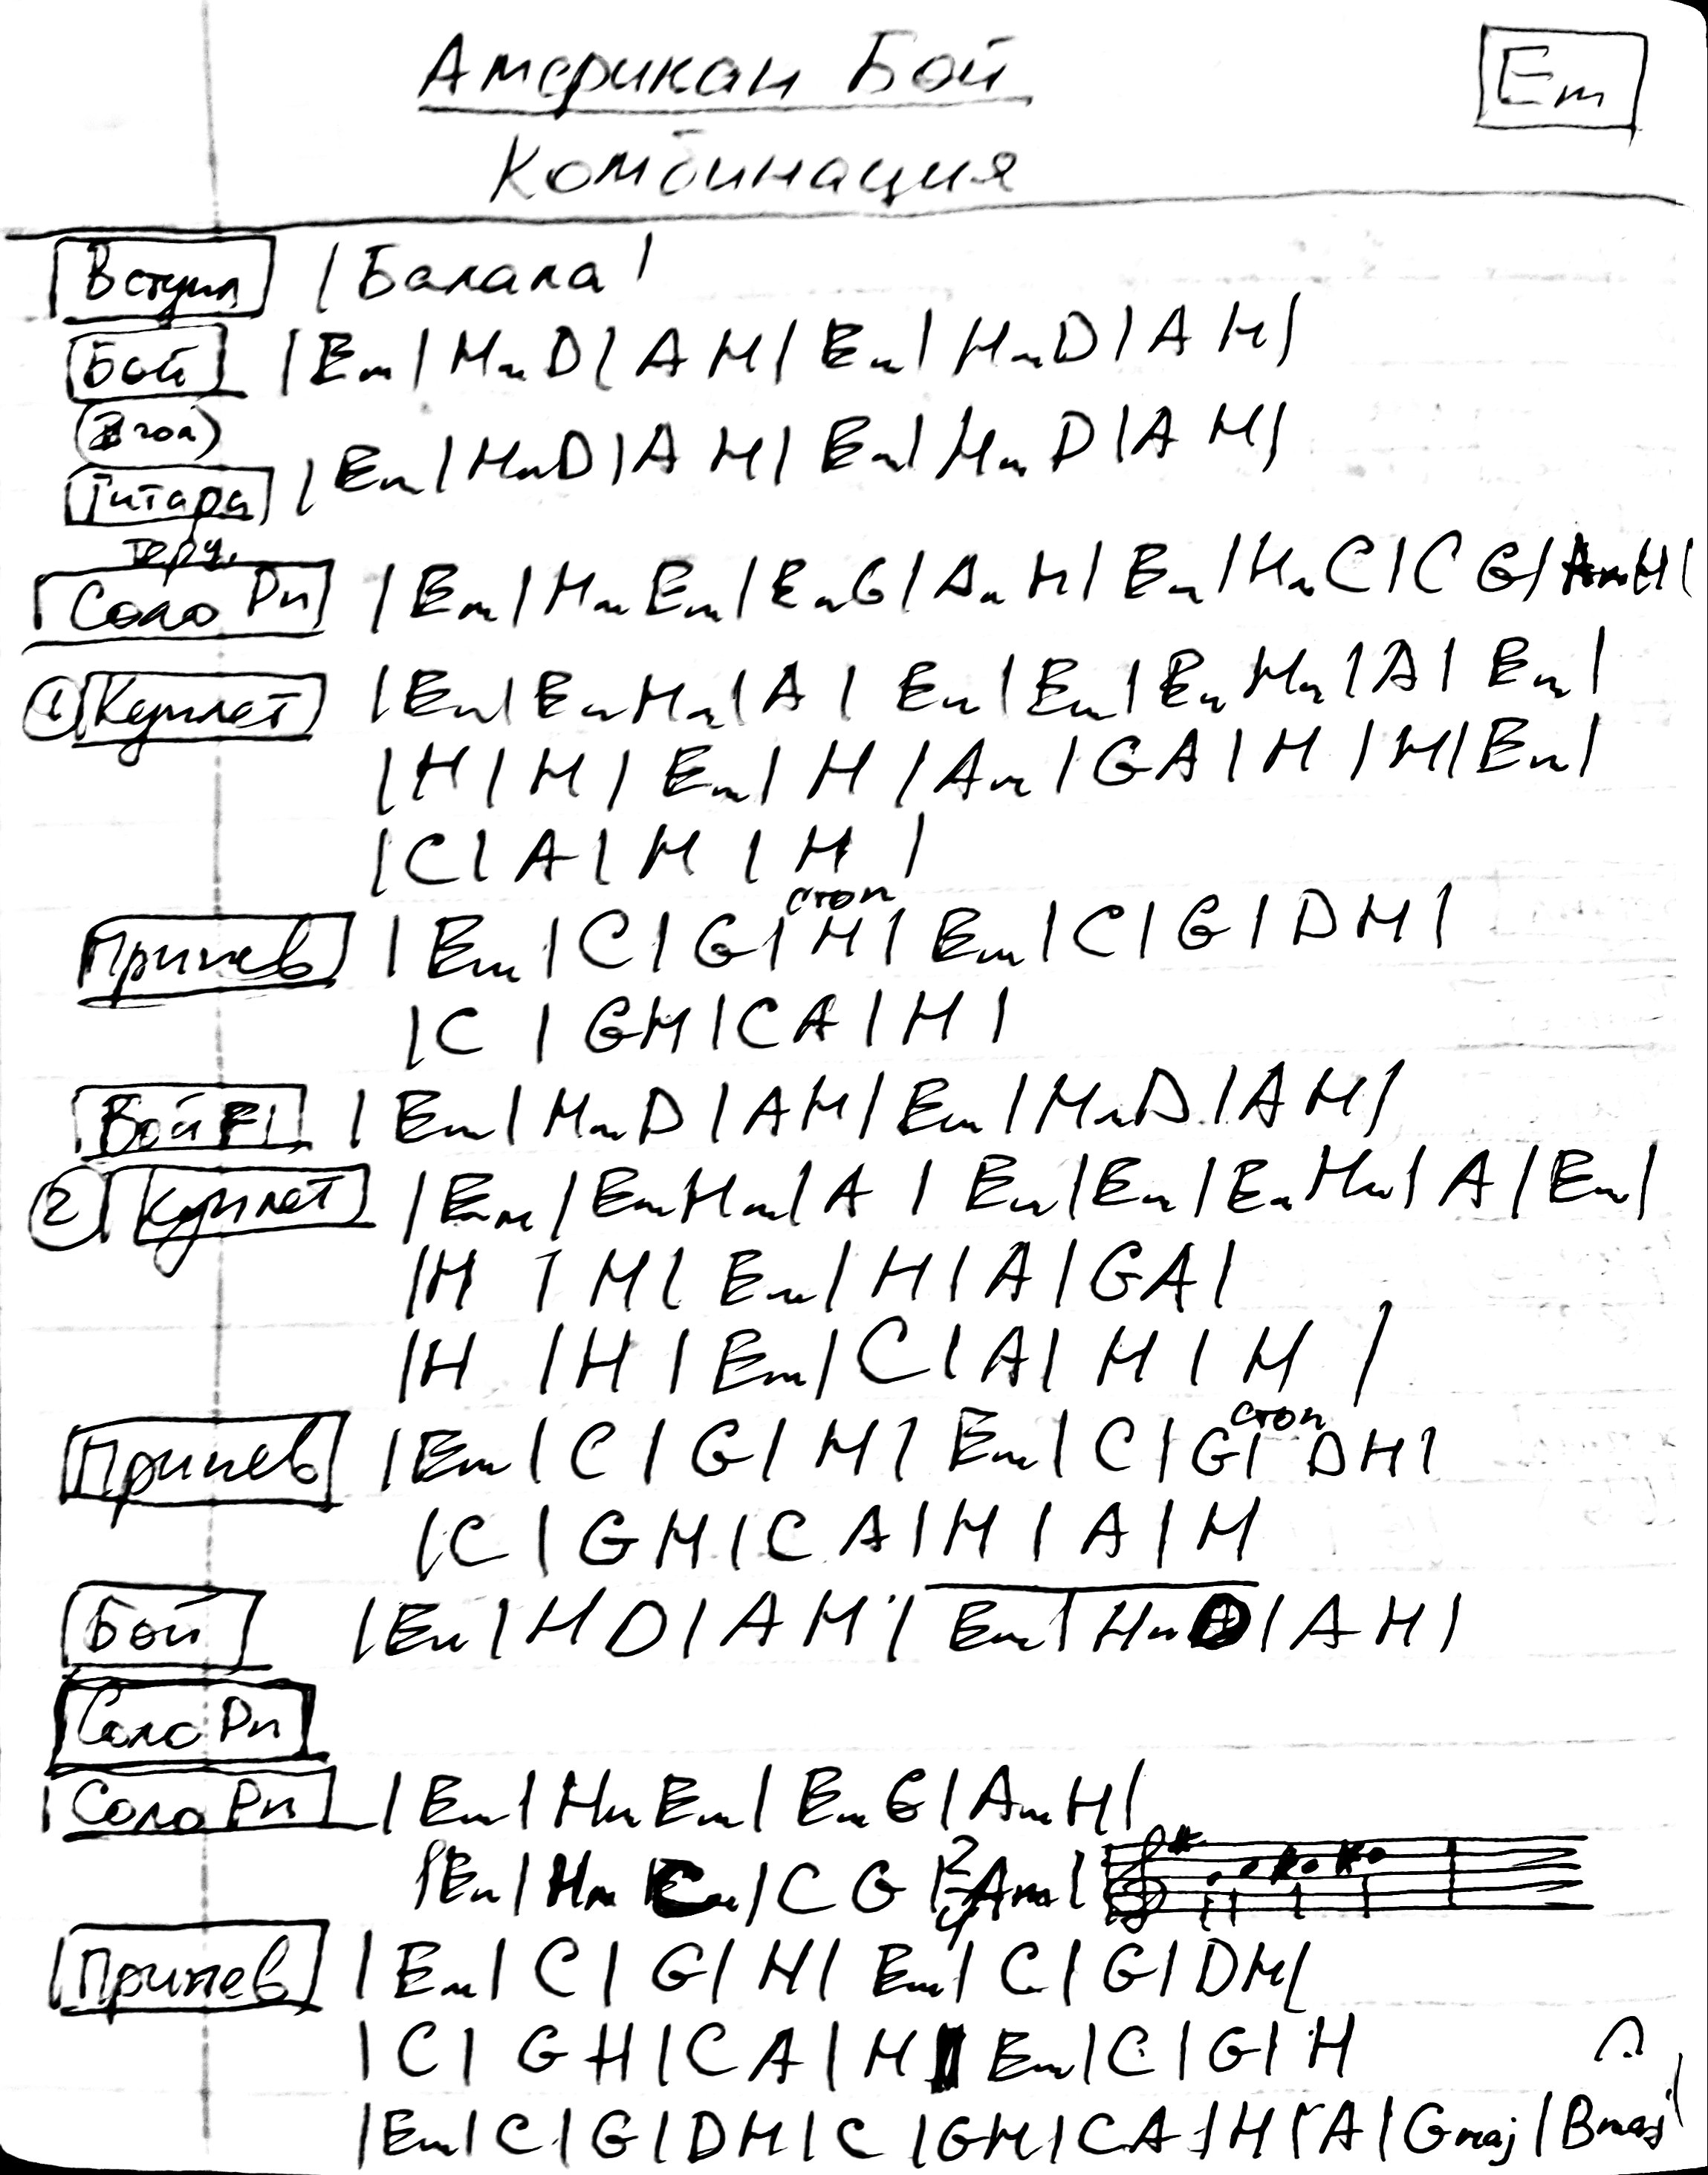 Американ Бой
Em
Комбинация
Вступл | Балала |
Бой | Em | Hm D | A H | Em | Hm D | A H |
Гитара | Em | Hm D | A H | Em | Hm D | A H |
Соло Рп | Em | Hm Em | Em G | Am H | Em | Hm C | C G | Am H |
① Куплет | Em | Em Hm | A | Em | Em | Em Hm | A | Em |
| H | H | Em | H | Am | G A | H | H | Em |
| C | A | H | H |
стоп
Припев | Em | C | G | H | Em | C | G | D H |
| C | G H | C A | H |
| Em | Hm D | A H | Em | Hm D | A H |
② Куплет | Em | Em Hm | A | Em | Em | Em Hm | A | Em |
| H | H | Em | H | A | G A |
| H | H | Em | C | A | H | H |
стоп
Припев | Em | C | G | H | Em | C | G | D H |
| C | G H | C A | H | A | H
Бой | Em | H D | A H | Em | Hm D | A H |
Соло Рп
Соло Рп | Em | Hm Em | Em G | Am H |
| Em | Hm C | C G | 2/4 Am |
Припев | Em | C | G | H | Em | C | G | D H |
| C | G H | C A | H | Em | C | G | H
| Em | C | G | D H | C | G H | C A | H | A | Gmaj | Bmaj |